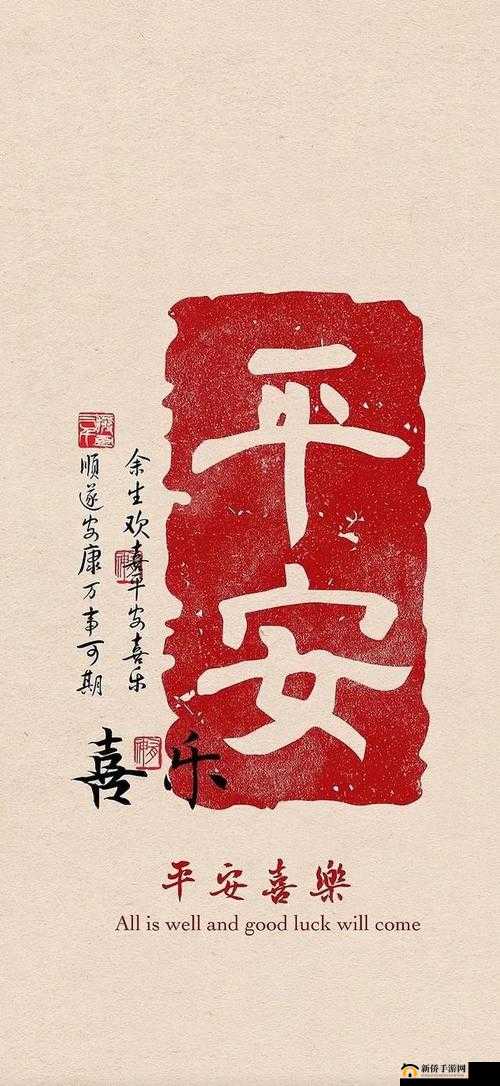 平安
余生欢喜平安喜乐
顺遂安康万事可期
喜乐
平安喜樂
All is well and good luck will come
新侨手游网